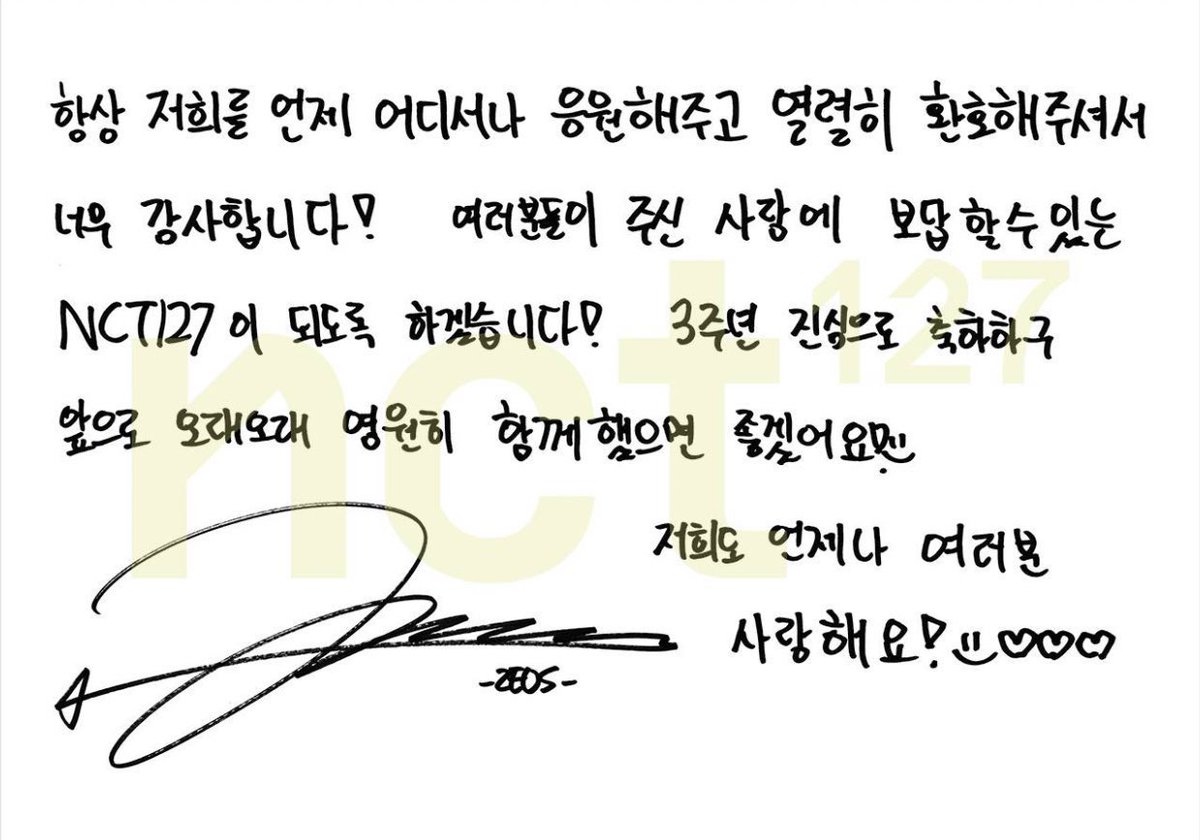 항상 저희를 언제 어디서나 응원해주고 열렬히 환호해주셔서
너무 감사합니다! 여러분들이 주신 사랑에 보답할수있는
NCT127이 되도록 하겠습니다! 3주년 진심으로 축하하구
앞으로 오래오래 영원히 함께했으면 좋겠어요!
저희도 언제나 여러분
사랑해요! ♡♡♡
-2805-
nct 127